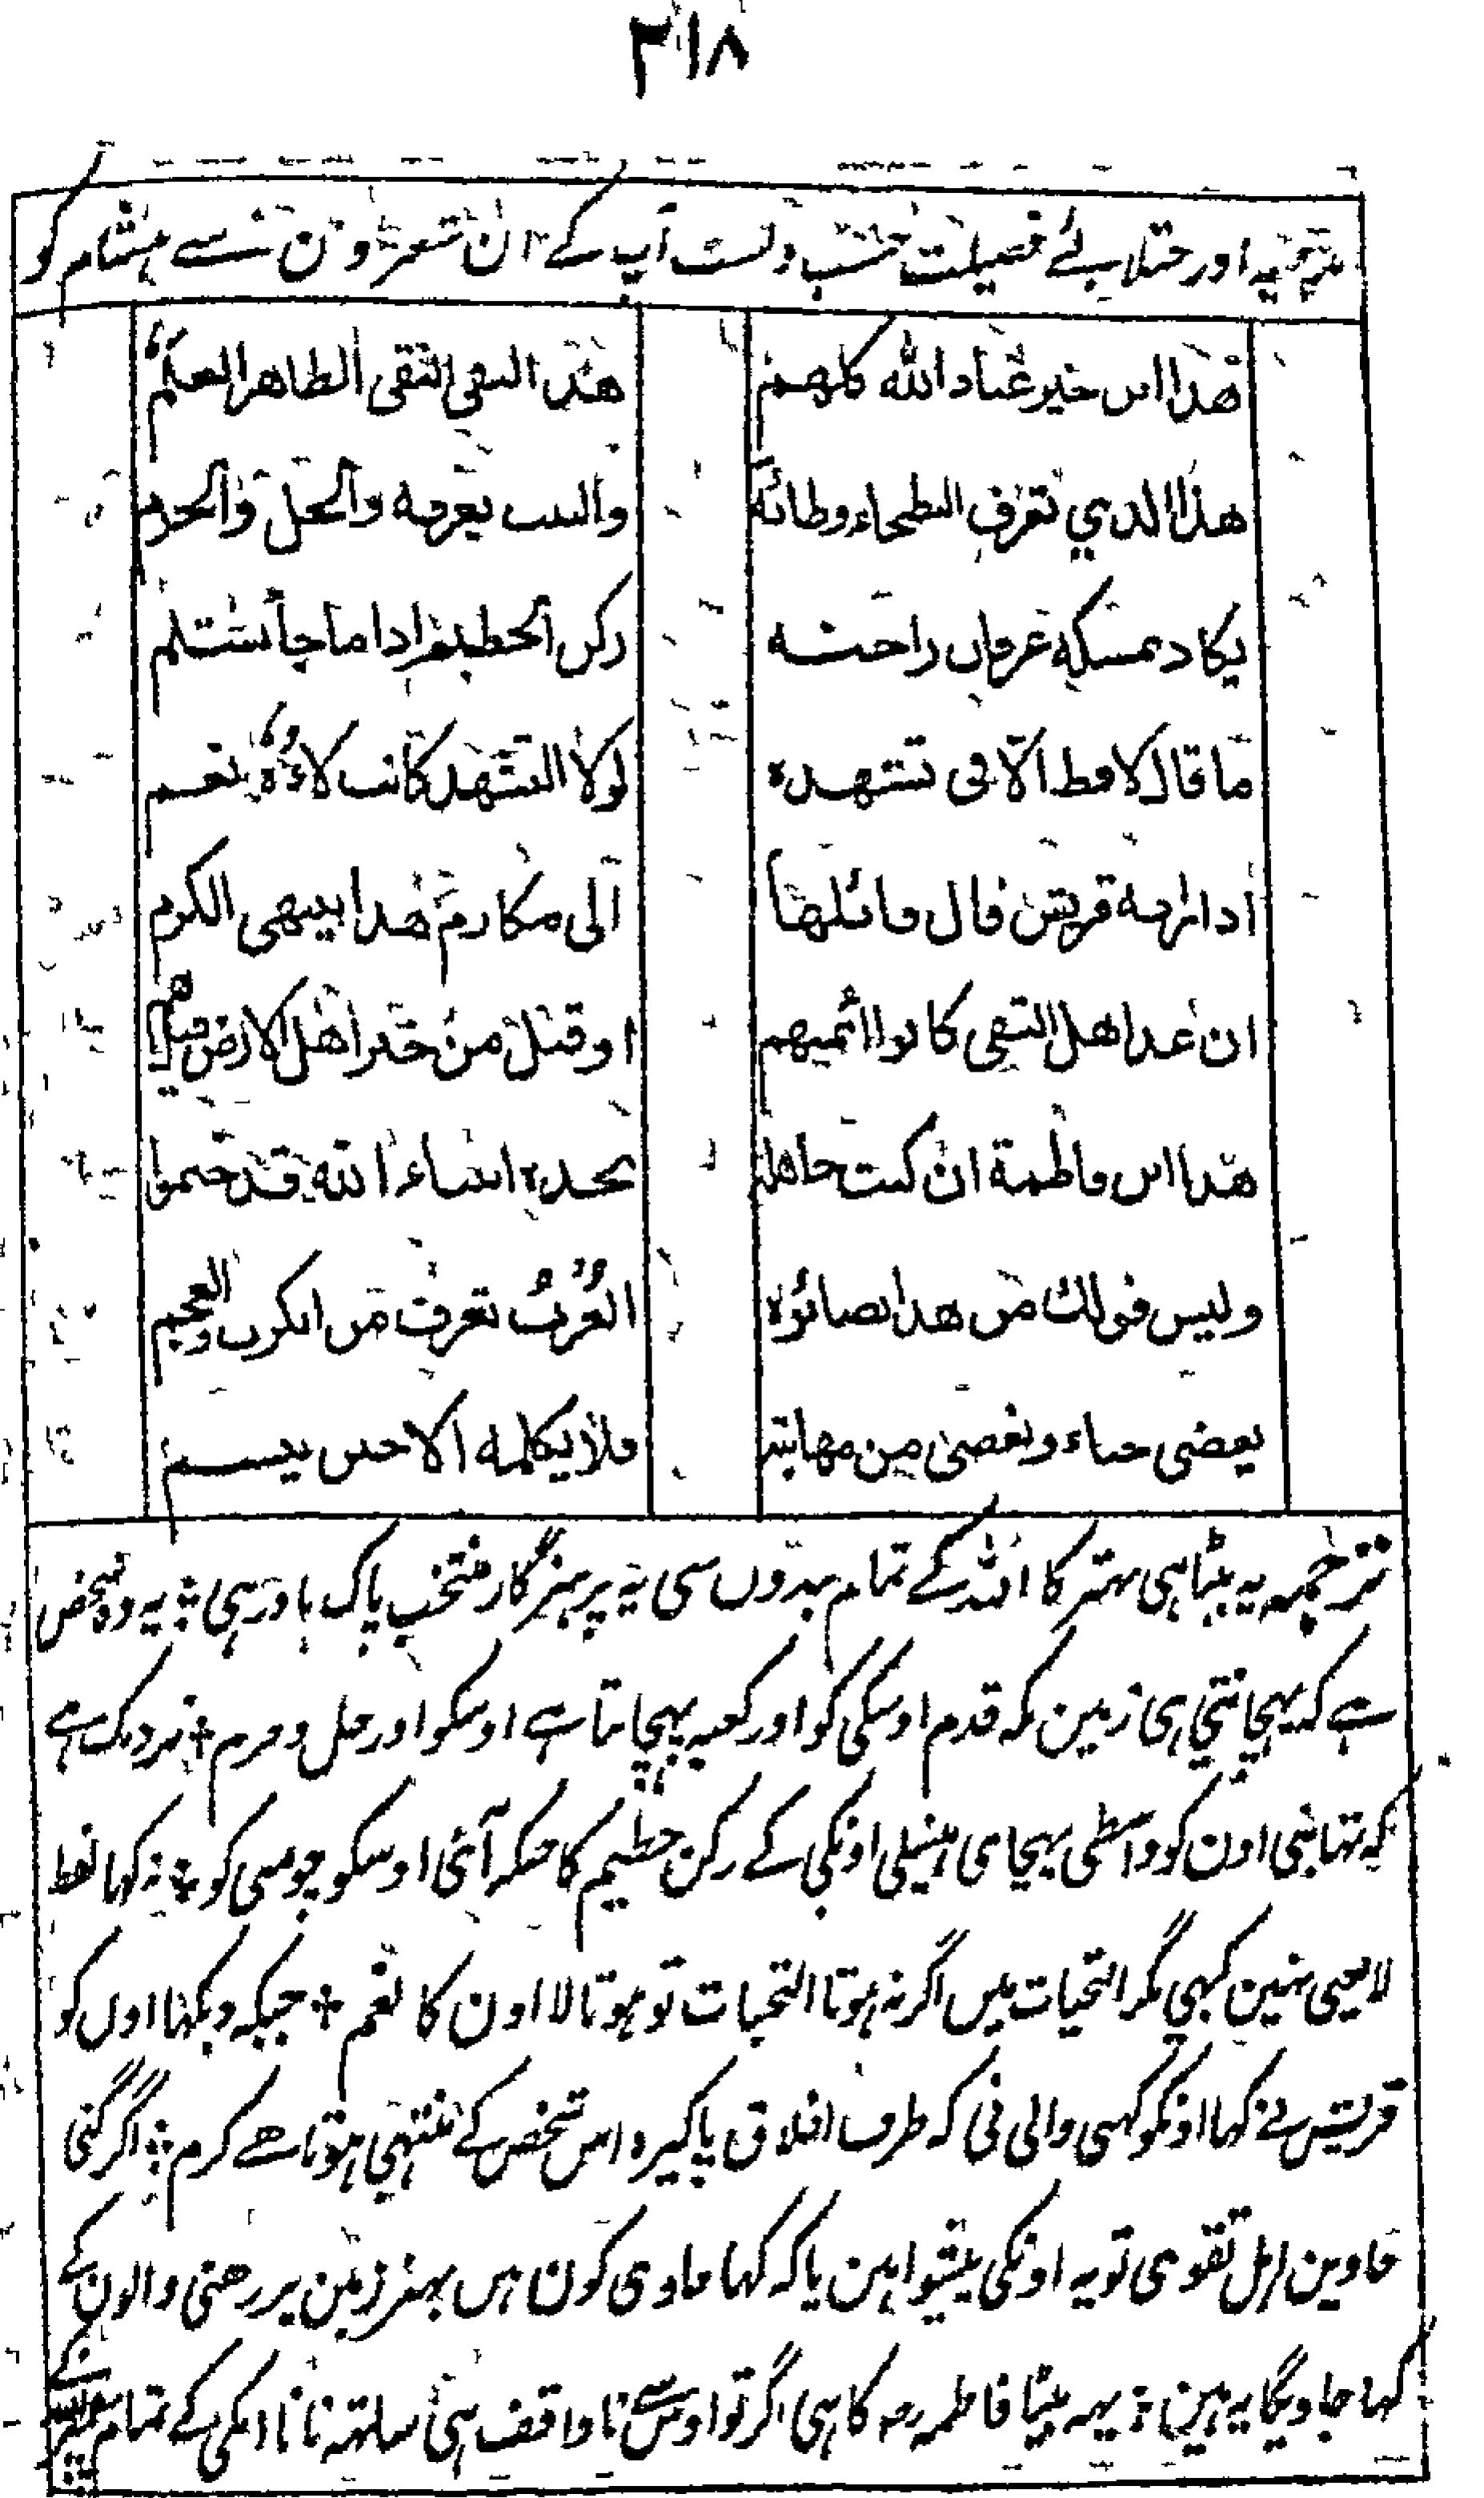 ۳۱۸
اور فضیلت حسب آپ کے ان شعرون سے ہشام کو
هذا ابن خير عباد الله كلهم
هذا النقى التقى الطاهر العلم
هذا الذي تعرف البطحاء وطائه
والبيت يعرفه والحل والحرم
يكاد يمسكه عرفان راحته
ركن الحطيم اذا ما جا يستلم
ما قال لا قط الا فى تشهده
لولا التشهد كانت لاءه نعم
اذا راته قريش قال قائلها
الى مكارم هذا ينتهى الكرم
ان عد اهل التقى كانوا ائمتهم
او قيل من خير اهل الارض قيل هم
هذا ابن فاطمة ان كنت جاهله
بجده انبياء الله قد ختموا
وليس قولك من هذا بضائره
العرب تعرف من انكرت والعجم
يغضى حياء ويغضى من مهابته
فلا يكلمه الا حين يبتسم
ترجمہ یہ بیٹا ہی بہتر کا اللہ کے تمام بندوں سی یہ پرہیزگار منتخب پاک ہی ÷ یہ وہ شخص
ہے کہ پہچانتی ہی زمین مکہ قدم اوسکی کو اور کعبہ پہچانتا ہے اوسکو اور حل و حرم ÷ نزدیک ہے
کہ اون کو واسطی ہتیلی اونکی کے رکن حطیم کا جبکہ آئی اوسکو چومنی کو ÷ نہ کہا لفظ
لا یعنی نہین کبھی مگر التحیات میں اگر نہ ہوتا التحیات تو ہوتا لا اون کا نعم ÷ جبکہ دیکہتا اون کو
قریش نے کہا اونکو کہنی والی نی کہ طرف اخلاق پاکیزہ اس شخص کے منتہی ہوتا ہے کرم ÷ اگر گنی
جاوین اہل تقوی تو یہ اونکی پیشوا ہین یا کہ کہا جاوی کون ہیں بہتر زمین پر رہنی والون کے
کہا جاویگا یہ ہین ÷ یہہ بیٹا فاطمہ رض کا ہی اگر تو اوس سے ناواقف ہی ساتہ نانا اسکی کے تمام